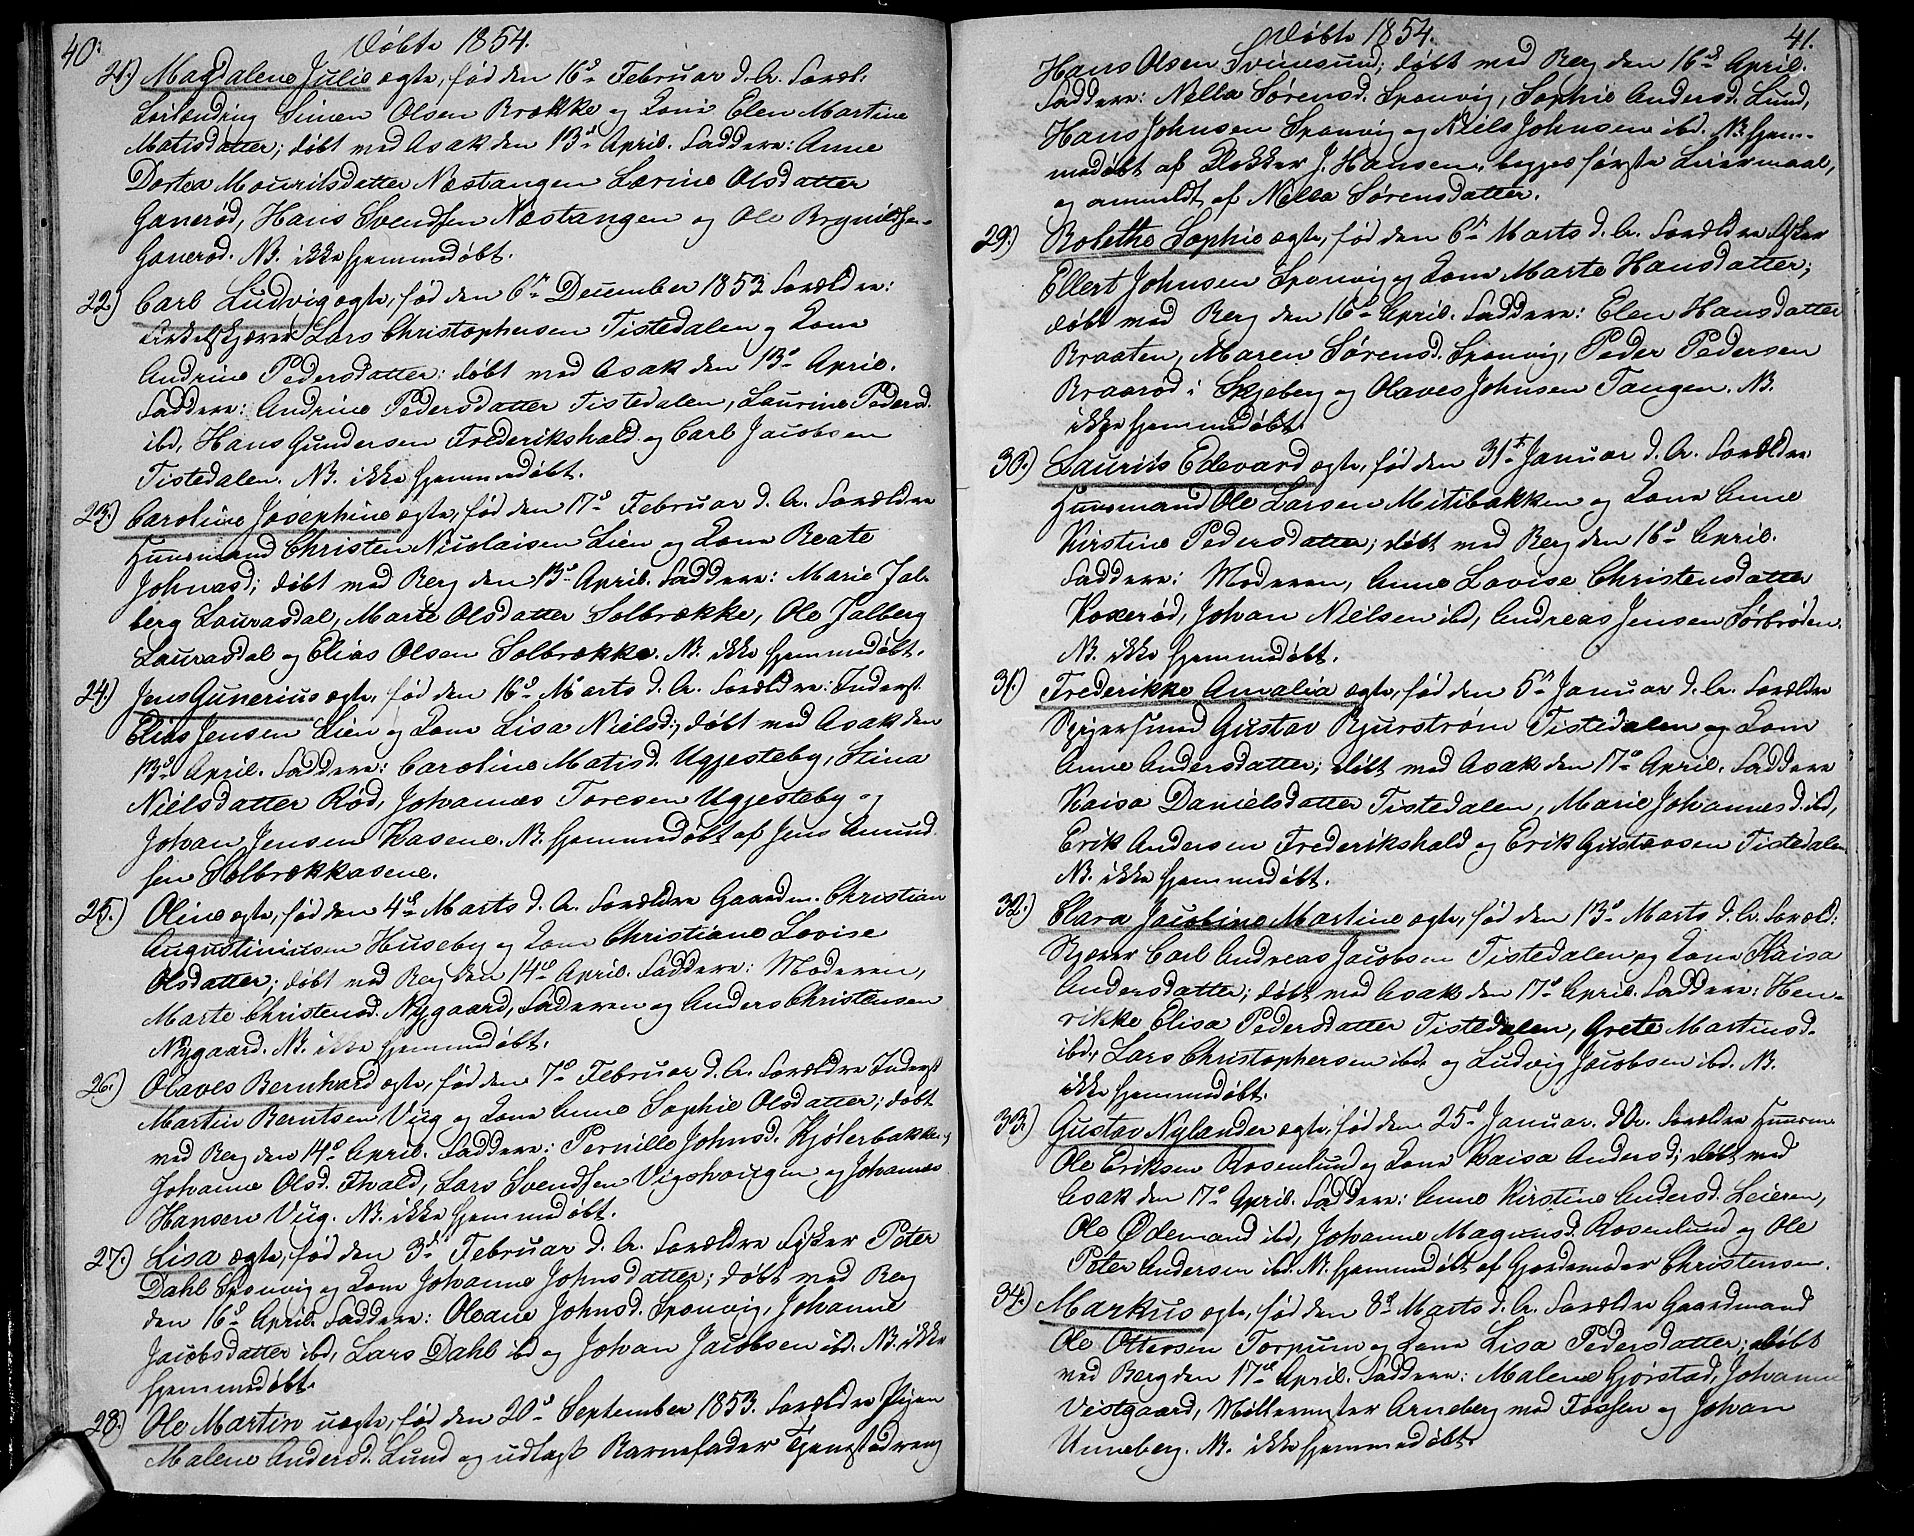 40.
Döbte 1854.
21.) Magdalene Julie ægte, fød den 16de Februar d. A. Foræl.
Simen Olsen Brække og Kone Elen Martine
Matisdatter; døbt ved Asak den 13de April. Faddere: Anne
Dortea Mouritsdatter Næstangen Særine Olsdatter
Ganerød, Hans Svendsen Næstangen og Ole Brynildsen
Ganerød. NB. ikke hjemmedøbt.
22.) Carl Ludvig ægte, fød den 6te December 1853. Forældre:
Lars Christophersen Tistedalen og Kone
Andrine Pedersdatter; døbt ved Asak den 13de April.
Faddere: Andrine Pedersdatter Tistedalen, Laurine Pedersd.
ibd, Hans Gundersen Frederikshald og Carl Jacobsen
Tistedalen. NB. ikke hjemmedøbt.
23.) Caroline Josephine ægte, fød den 17de Februar d. A. Forældre
Huusmand Christen Nicolaisen Lien og Kone Beate
Johnasd; døbt ved Berg den 13de April. Faddere: Marie Jal-
berg Laurasdal, Marte Olsdatter Solbrække, Ole Jalberg
Laurasdal og Elias Olsen Solbrække. NB. ikke hjemmedøbt.
24.) Jens Gunerius ægte, fød den 16de Marts d. A. Forældre: Inderst
Elias Jensen Lien og Kone Lisa Nielsd; døbt ved Asak den
13de April. Faddere: Caroline Matisd. Ugjesteby, Stina
Nielsdatter Rød, Johannes Toresen Ugjesteby og
Johan Jensen Kasene. NB. hjemmedøbt af Jens Amund
sen Solbrækkasene.
25.) Oline ægte, fød den 4de Marts d. A. Forældre Gaardm. Christian
Augustiniusen Huseby og Kone Christiane Lovise
Olsdatter; døbt ved Berg den 14de April. Faddere: Moderen,
Marte Christensd. Nygaard, Faderen og Anders Christensen
Nygaard. NB. ikke hjemmedøbt.
26.) Olaves Bernhard ægte, fød den 7de Februar d. A. Forældre Inderst
Martin Berntsen Viig og Kone Anne Sophie Olsdatter; døbt
ved Berg den 14de April. Faddere: Pernille Johnsd. Kjølerbakken,
Johanne Olsd. Fhald, Lars Svendsen Vigshaugen og Johannes
Hansen Viig. NB. ikke hjemmedøbt.
27.) Lisa ægte, fød den 3de Februar d. A. Forældre Fisker Peter
Dahl Sponvig og Kone Johanne Johnsdatter; døbt ved Berg
den 16de April. Faddere: Oleane Johnsd. Sponvig, Johanne
Jacobsdatter ibd, Lars Dahl ibd og Johan Jacobsen ibd. NB. ikke
hjemmedøbt.
28.) Ole Martin uægte, fød den 20de September 1853. Forældre Pigen
Malene Andersd. Lund og udlagt Barnefader Tjenestedreng
41.
Döbte 1854.
Hans Olsen Svinesund; døbt ved Berg den 16de April.
Faddere: Nella Sørensd. Sponvig, Sophie Andersd. Lund,
Hans Johnsen Sponvig og Niels Johnsen ibd. NB. hjem-
medøbt af Klokker J. Hansen, begges første Leiermaal,
og anmeldt af Nella Sørensdatter.
29.) Bolethe Sophie ægte, fød den 6te Marts d. A. Forældre Fisker
Ellert Johnsen Sponvig og Kone Marte Hansdatter;
døbt ved Berg den 16de April. Faddere: Elen Hansdatter
Braaten, Maren Sørensd. Sponvig, Peder Pedersen
Braarød i Skjeberg og Olaves Johnsen Tangen. NB.
ikke hjemmedøbt.
30.) Laurits Edevard ægte, fød den 31te Januar d. A. Forældre
Huusmand Ole Larsen Mitibakken og Kone Anne
Kirstine Pedersdatter; døbt ved Berg den 16de April.
Faddere: Moderen, Anne Lovise Christensdatter
Koxerød, Johan Nielsen ibd, Andreas Jensen Sørbrøden.
NB. ikke hjemmedøbt.
31.) Frederikke Amalia ægte, fød den 5te Januar d. A. Forældre
Spigersmed Gustav Bjurstrøm Tistedalen og Kone
Anne Andersdatter; døbt ved Asak den 17de April. Faddere
Kaisa Danielsdatter Tistedalen, Marie Johannesd. ibd,
Erik Andersen Frederikshald og Erik Gustavsen Tistedalen
NB. ikke hjemmedøbt.
32.) Clara Jacobine Martine ægte, fød den 13de Marts d. A. Foræld:
Skjærer Carl Andreas Jacobsen Tistedalen og Kone Kaisa
Andersdatter; døbt ved Asak den 17de April. Faddere: Hen-
rikke Elisa Pedersdatter Tistedalen, Grete Martinsd.
ibd., Lars Christophersen ibd. og Ludvig Jacobsen ibd. NB.
ikke hjemmedøbt.
33.) Gustav Nylander ægte, fød den 25de Januar. d. A. Forældre Huusm.
Ole Eriksen Rosenlund og Kone Kaisa Andersd; døbt ved
Asak den 17de April. Faddere: Anne Kirstine Andersd. Leieren,
Ole Ødemand ibd, Johanne Magnusd. Rosenlund og Ole
Peter Andersen ibd. NB. hjemmedøbt af Gjordemoder Christensen.
34.) Markus ægte, fød den 8de Marts d. A. Forældre Gaardmand
Ole Ottersen Torpum og Kone Lisa Pedersdatter; døbt
ved Berg den 17de April. Faddere: Malene Gjørstad, Johanne
Vestgaard, Møllermester Arneberg ved Fossen og Johan
Unneberg. NB. ikke hjemmedøbt.